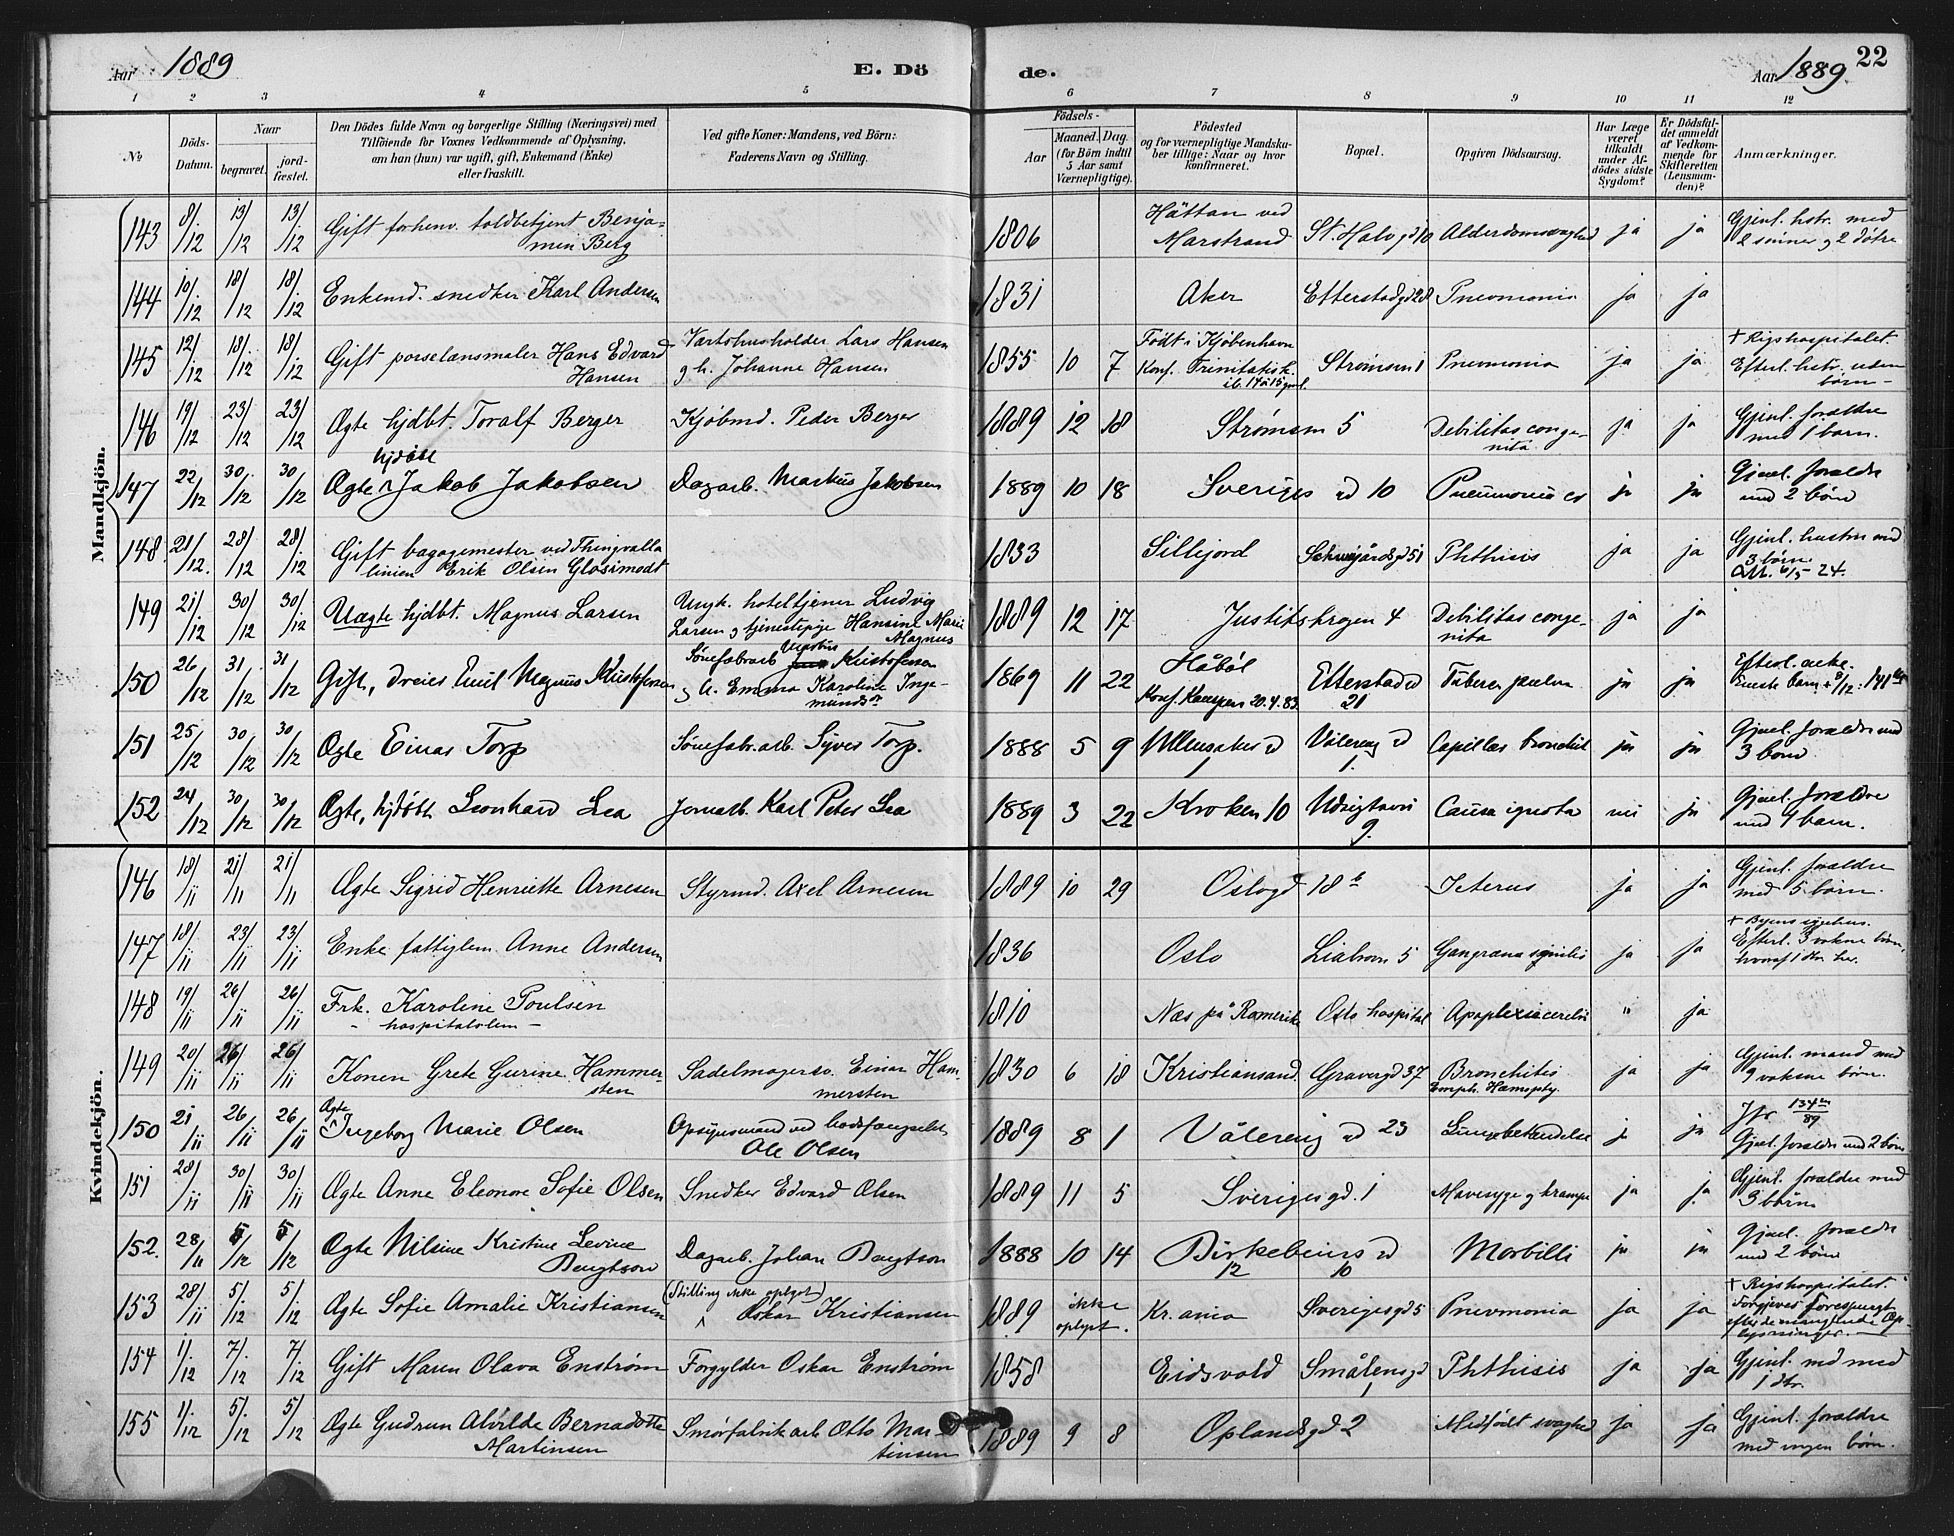 Aar 1889
E. Dö
de.
Aar 1889. 22
1 2 3 4 5 6 7 8 9 10 11 12
No
Döds-Datum.
Naar
begravet.
jord-fæstet.
Den Dödes fulde Navn og borgerlige Stilling (Næringsvei) med
Tilföiende for Voxnes Vedkommende af Oplysning,
om han (hun) var ugift, gift, Enkemand (Enke)
eller fraskilt.
Ved gifte Koner: Mandens, ved Börn:
Faderens Navn og Stilling.
Födsels-
Aar
Maaned. Dag.
(for Börn indtil
5 Aar samt
Værnepligtige).
Födested
og for værnepligtige Mandska-
ber tillige: Naar og hvor
konfirmeret.
Bopæl.
Opgiven Dödsaarsag.
Har Læge
været
tilkaldt
under Af-
dödes sidste
Sygdom?
Er Dödsfal-
det anmeldt
af Vedkom-
mende for
Skifteretten
(Lensman-
den)?
Anmærkninger.
Mandkjön.
143 8/12 13/12 13/12 Gift forhenv. toldbetjent Benja-
men Berg 1806 Hättan ved
Marstrand St. Halvgd 10 Alderdomsvaghed ja ja Gjenl. hstr. med
2 sönner og 2 döttre
144 10/12 18/12 18/12 Enkemd. snedker Karl Andersen 1831 Aker Etterstadgd 28 Pneumonia ja ja
145 12/12 18/12 18/12 Gift porselænsmaler Hans Edvard
Hansen Værtshusholder Lars Hansen
og h. Johanne Hansen 1855 10 7 Født i Kjöbenhavn
Konf. Trinitatisk. Strømsv 1 Pneumonia ja ja + Rigshospitalet.
Efterl. hstr. uden
børn
146 19/12 23/12 23/12 Ægte hjdbt. Toralf Berger Kjöbmd. Peder Berger 1889 12 18 Strömsvn 5 Debilitas conge-
nita ja ja Gjenl. forældre
med 1 barn.
147 22/12 30/12 30/12 Ægte hjdöbt Jakob Jakobsen Dagarb. Markus Jakobsen 1889 10 18 Sveriges gd 10 Pneumonia ja ja Gjenl. forældre
med 2 børn
148. 21/12. 28/12 28/12 Gift bagagemester ved Thingvalla
linien Erik Olsen Glosimodt 1833 Sillejord Schweigårdsgd 51 Phthisis ja ja Gjenl. hustru med
3 børn.
149 21/12 30/12 30/12 Uægte hjdbt. Magnus Larsen Ungk. hoteltjener Ludvig
Larsen og tjenestepige Hansine Marie
Magnus 1889 12 17 Justitskrogen 4 Debilitas conge-
nita ja ja
150 26/12 31/12 31/12 Gift, dreier Emil Magnus Kristofersen Kristofersen
og h. Emma Karoline Inge-
1869 11 22 Håböl
Konf. Kampen 20.4.83. Etterstad gd
21 Tuberc. pulm ja ja Efterl. enke.
Eneste barn + 8/12
151 25/12 30/12 30/12 Ægte Einar Torp Sönefabr.arb. Syver Torp. 1888 5 9 Ullensaker gd
1 Vålereng gd
1. Capillær bronchit ja ja Gjenl. forældre med
3 børn
152 24/12 30/12 30/12 Ægte, hjdöbt Leonhard Lea Jernarb. Karl Peter Lea 1889 3 22 Kroken 10 Udsigtsvn
9. Causa ignota nei ja Gjenl. forældre
med 1 barn.
Kvindekjön.
146 18/11 21/11 21/11 Ægte Sigrid Henriette Arnesen Styrmd. Axel Arnesen 1889 10 29 Oslogd 18 b Icterus ja ja Gjenl. forældre
med 5 børn.
147 18/11 23/11 23/11 Enke fattiglem Anne Andersen 1836 Oslo Liabrovn 5 Gangræna senilis ja ja + Byens sygehus.
Efterl. 3 voksne børn,
hvoraf 1 dtr. her.
148 19/11 26/11 26/11 Frk. Karoline Poulsen
- hospitalslem - 1810 Næs på Romerike Oslo hospital Apoplexia cerebri " ja
149 20/11 26/11 26/11 Konen Grete Gurine Hammer-
sten Sadelmagersv. Einar Ham-
mersten 1830 6 18 Kristiansand Grønergd 37 Bronchitis
Emph. Hæmopty. ja ja Gjenl. mand med
9 voksne børn.
150 21/11 26/11 26/11 Ægte Ingeborg Marie Olsen Opsynsmand ved bodsfængselet
Ole Olsen 1889 8 1 Vålereng gd 23 Lungebetændelse ja ja Jfr. 134/89
Gjenl. forældre med 2 børn
151 28/11 30/11 30/11 Ægte Anne Eleonore Sofie Olsen Snedker Edvard Olsen 1889 11 5 Sverigesgd. 1 Mavesyge og krampe ja ja Gjenl. forældre med
3 børn
152. 28/11 5/12 5/12 Ægte Nilsine Kristine Levine
Bengtson Dagarb. Johan Bengtson 1888 10 14 Birkebeiners gd
12 10 Morbilli ja ja Gjenl. forældre
med 2 børn
153 28/11 5/12 5/12 Ægte Sofie Amalie Kristiansen (Stilling ikke oplyst)
Oskar Kristiansen 1889 ikke
oplyst. Kr.ania Sverigesgd 5 Pneumonia ja ja + Rigshospitalet.
Forgjeves forespurgt
efter de manglende Op-
lysninger.
154 1/12 7/12 7/12 Gift Maren Olava Enström Forgylder Oskar Enström 1858 Eidsvold Smålensgd
1 Phthisis ja ja Gjenl. md med
1 dtr.
155 1/12 5/12 5/12 Ægte Gudrun Alvilde Bernadotte
Martinsen Smörfabrikarb Otto Mar-
tinsen 1889 9 8 Oplandsgd 2 Medfödt svaghed ja ja Gjenl. forældre
med ingen børn.